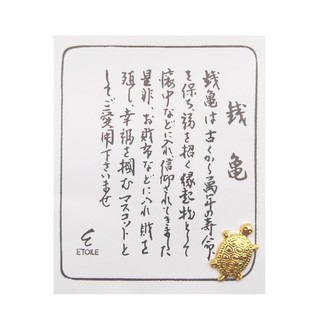 銭亀
銭亀は古くから萬年の寿命
を保ち、福を招く縁起物として
懐中などに入れ信仰されてきました
是非、お財布などに入れ財を
殖し、幸福を掴むマスコットと
してご愛用下さいませ
ETOILE